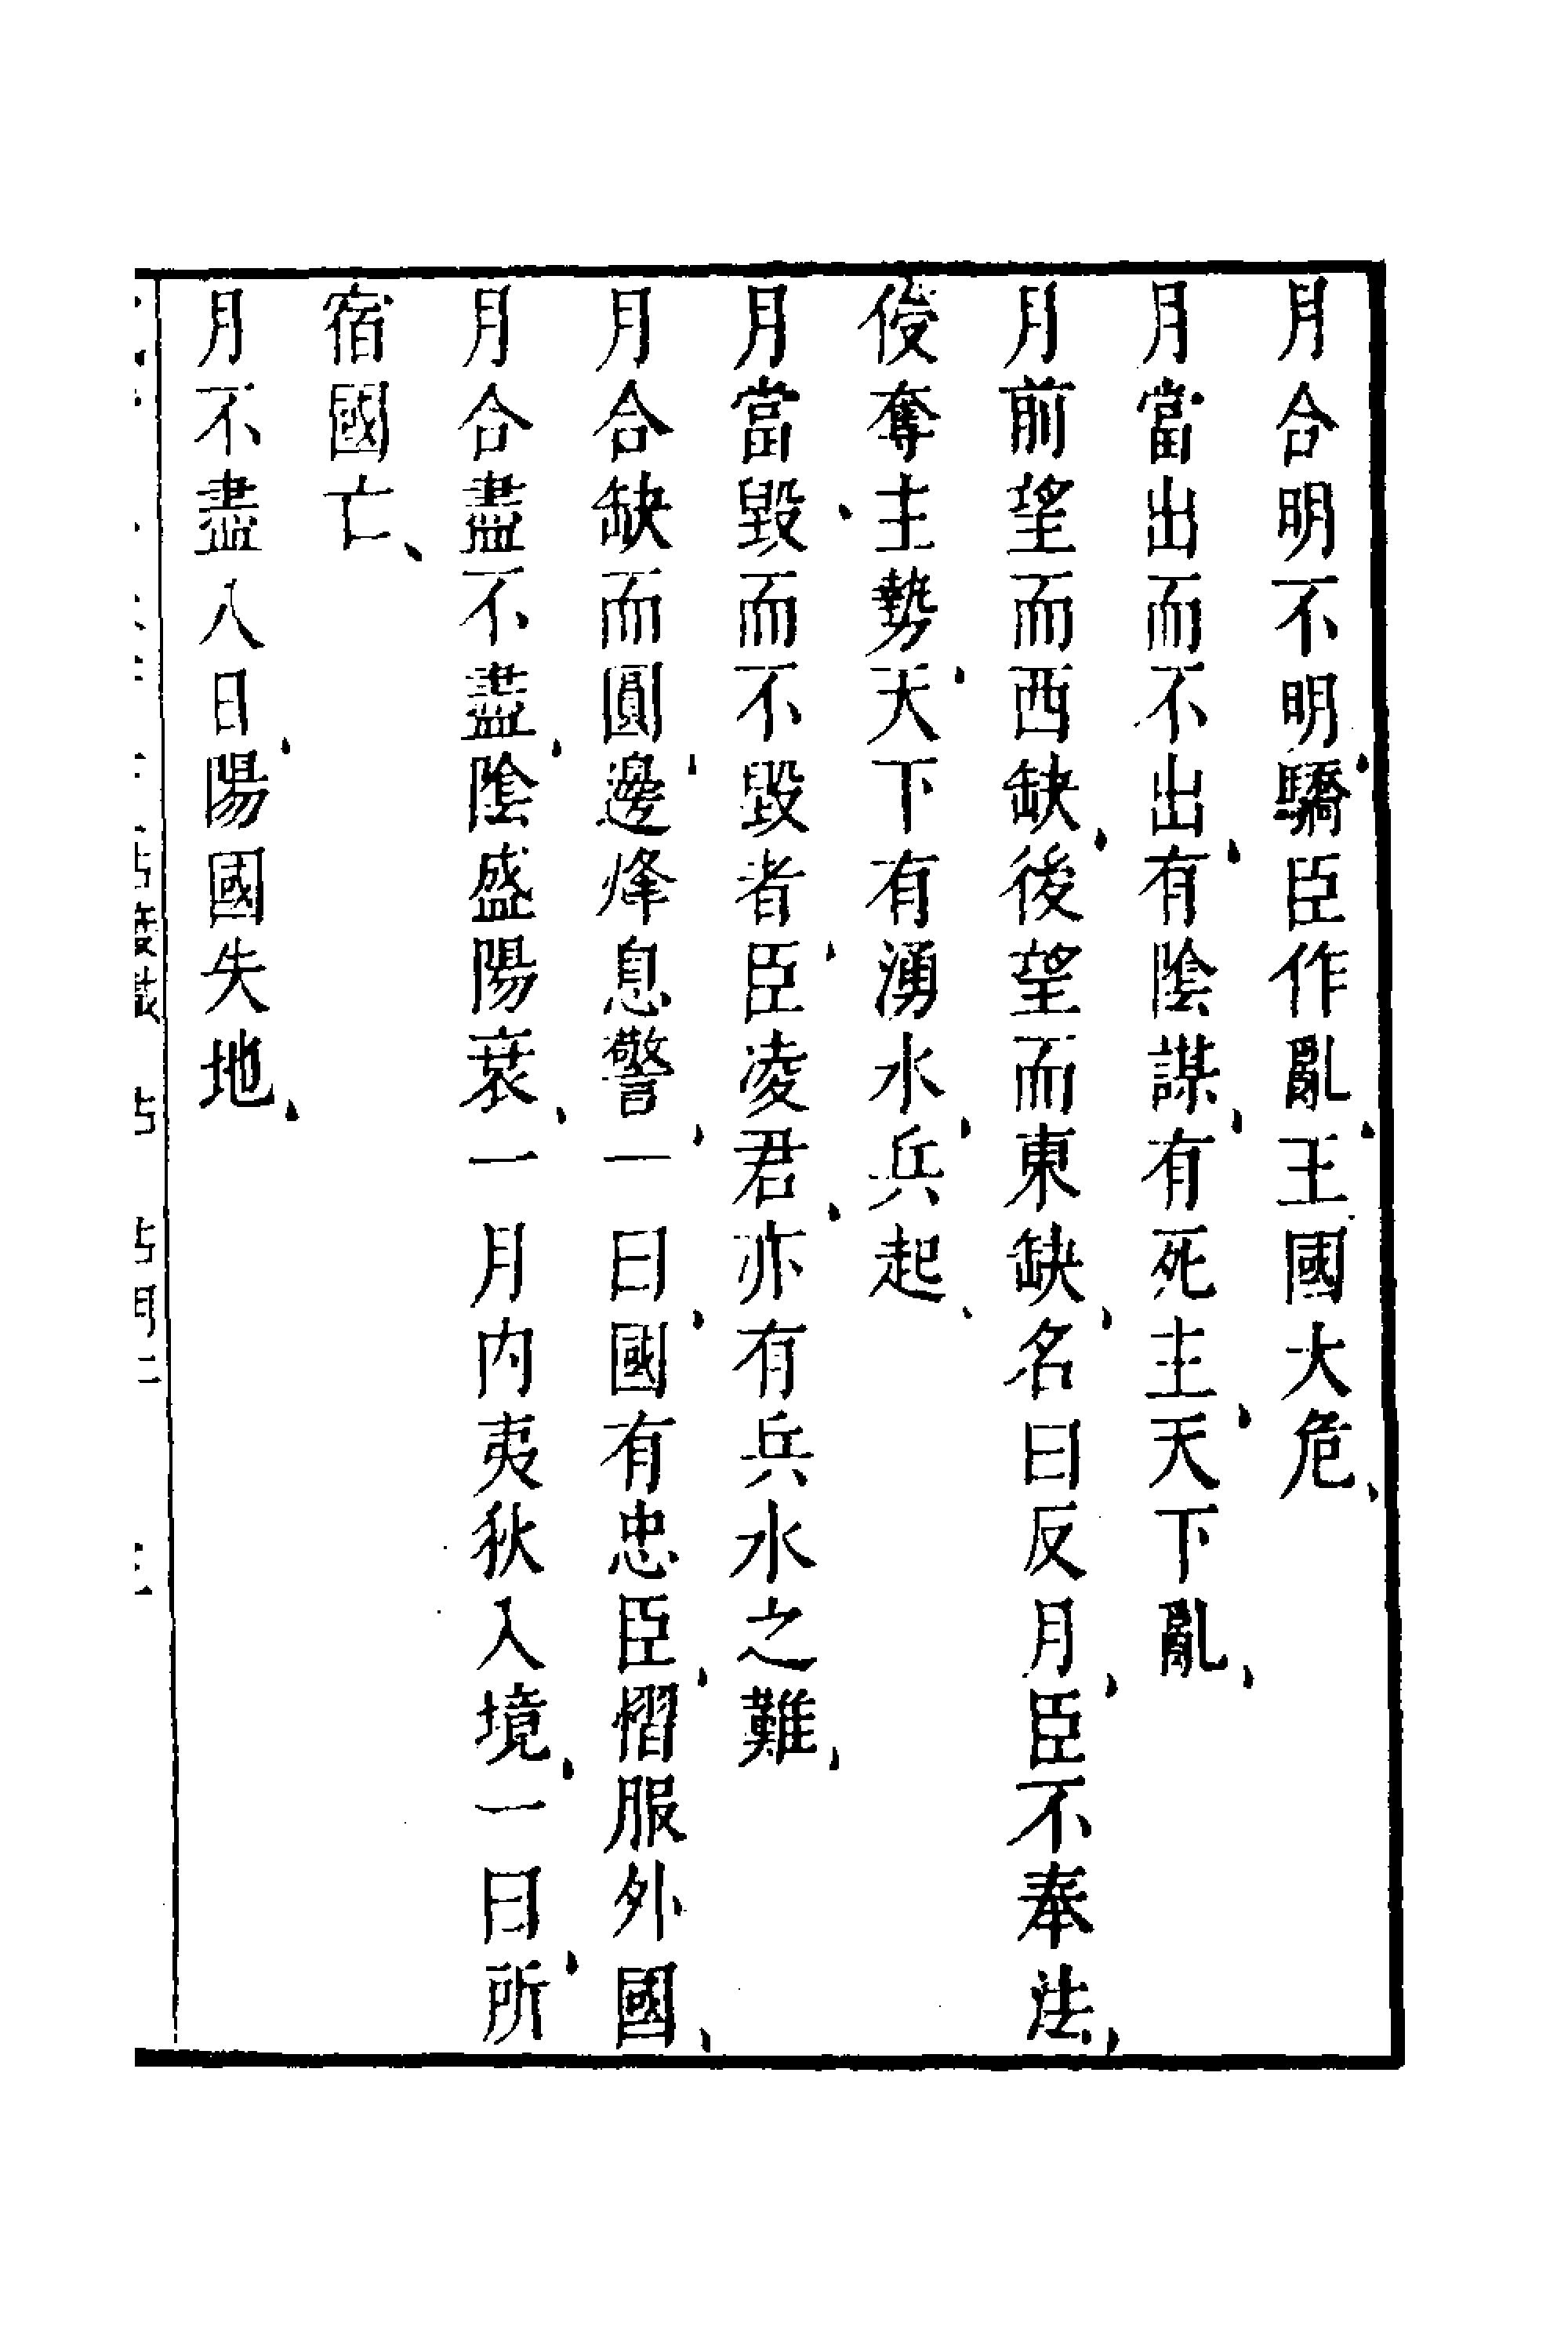 月合明不明、驕臣作亂、王國大危、
月當出而不出、有陰謀、有死主、天下亂、
月前望而西缺、後望而東缺、名曰反月、臣不奉法、
侵奪、主勢、天下有湧水、兵起、
月當毀而不毀者、臣凌君、亦有兵水之難、
月合缺而圓、邊烽息警、一曰、國有忠臣、慴服外國、
月合盡不盡、陰盛陽衰、一月內夷狄入境、一曰、所
宿國亡、
月不盡八日、陽國失地、